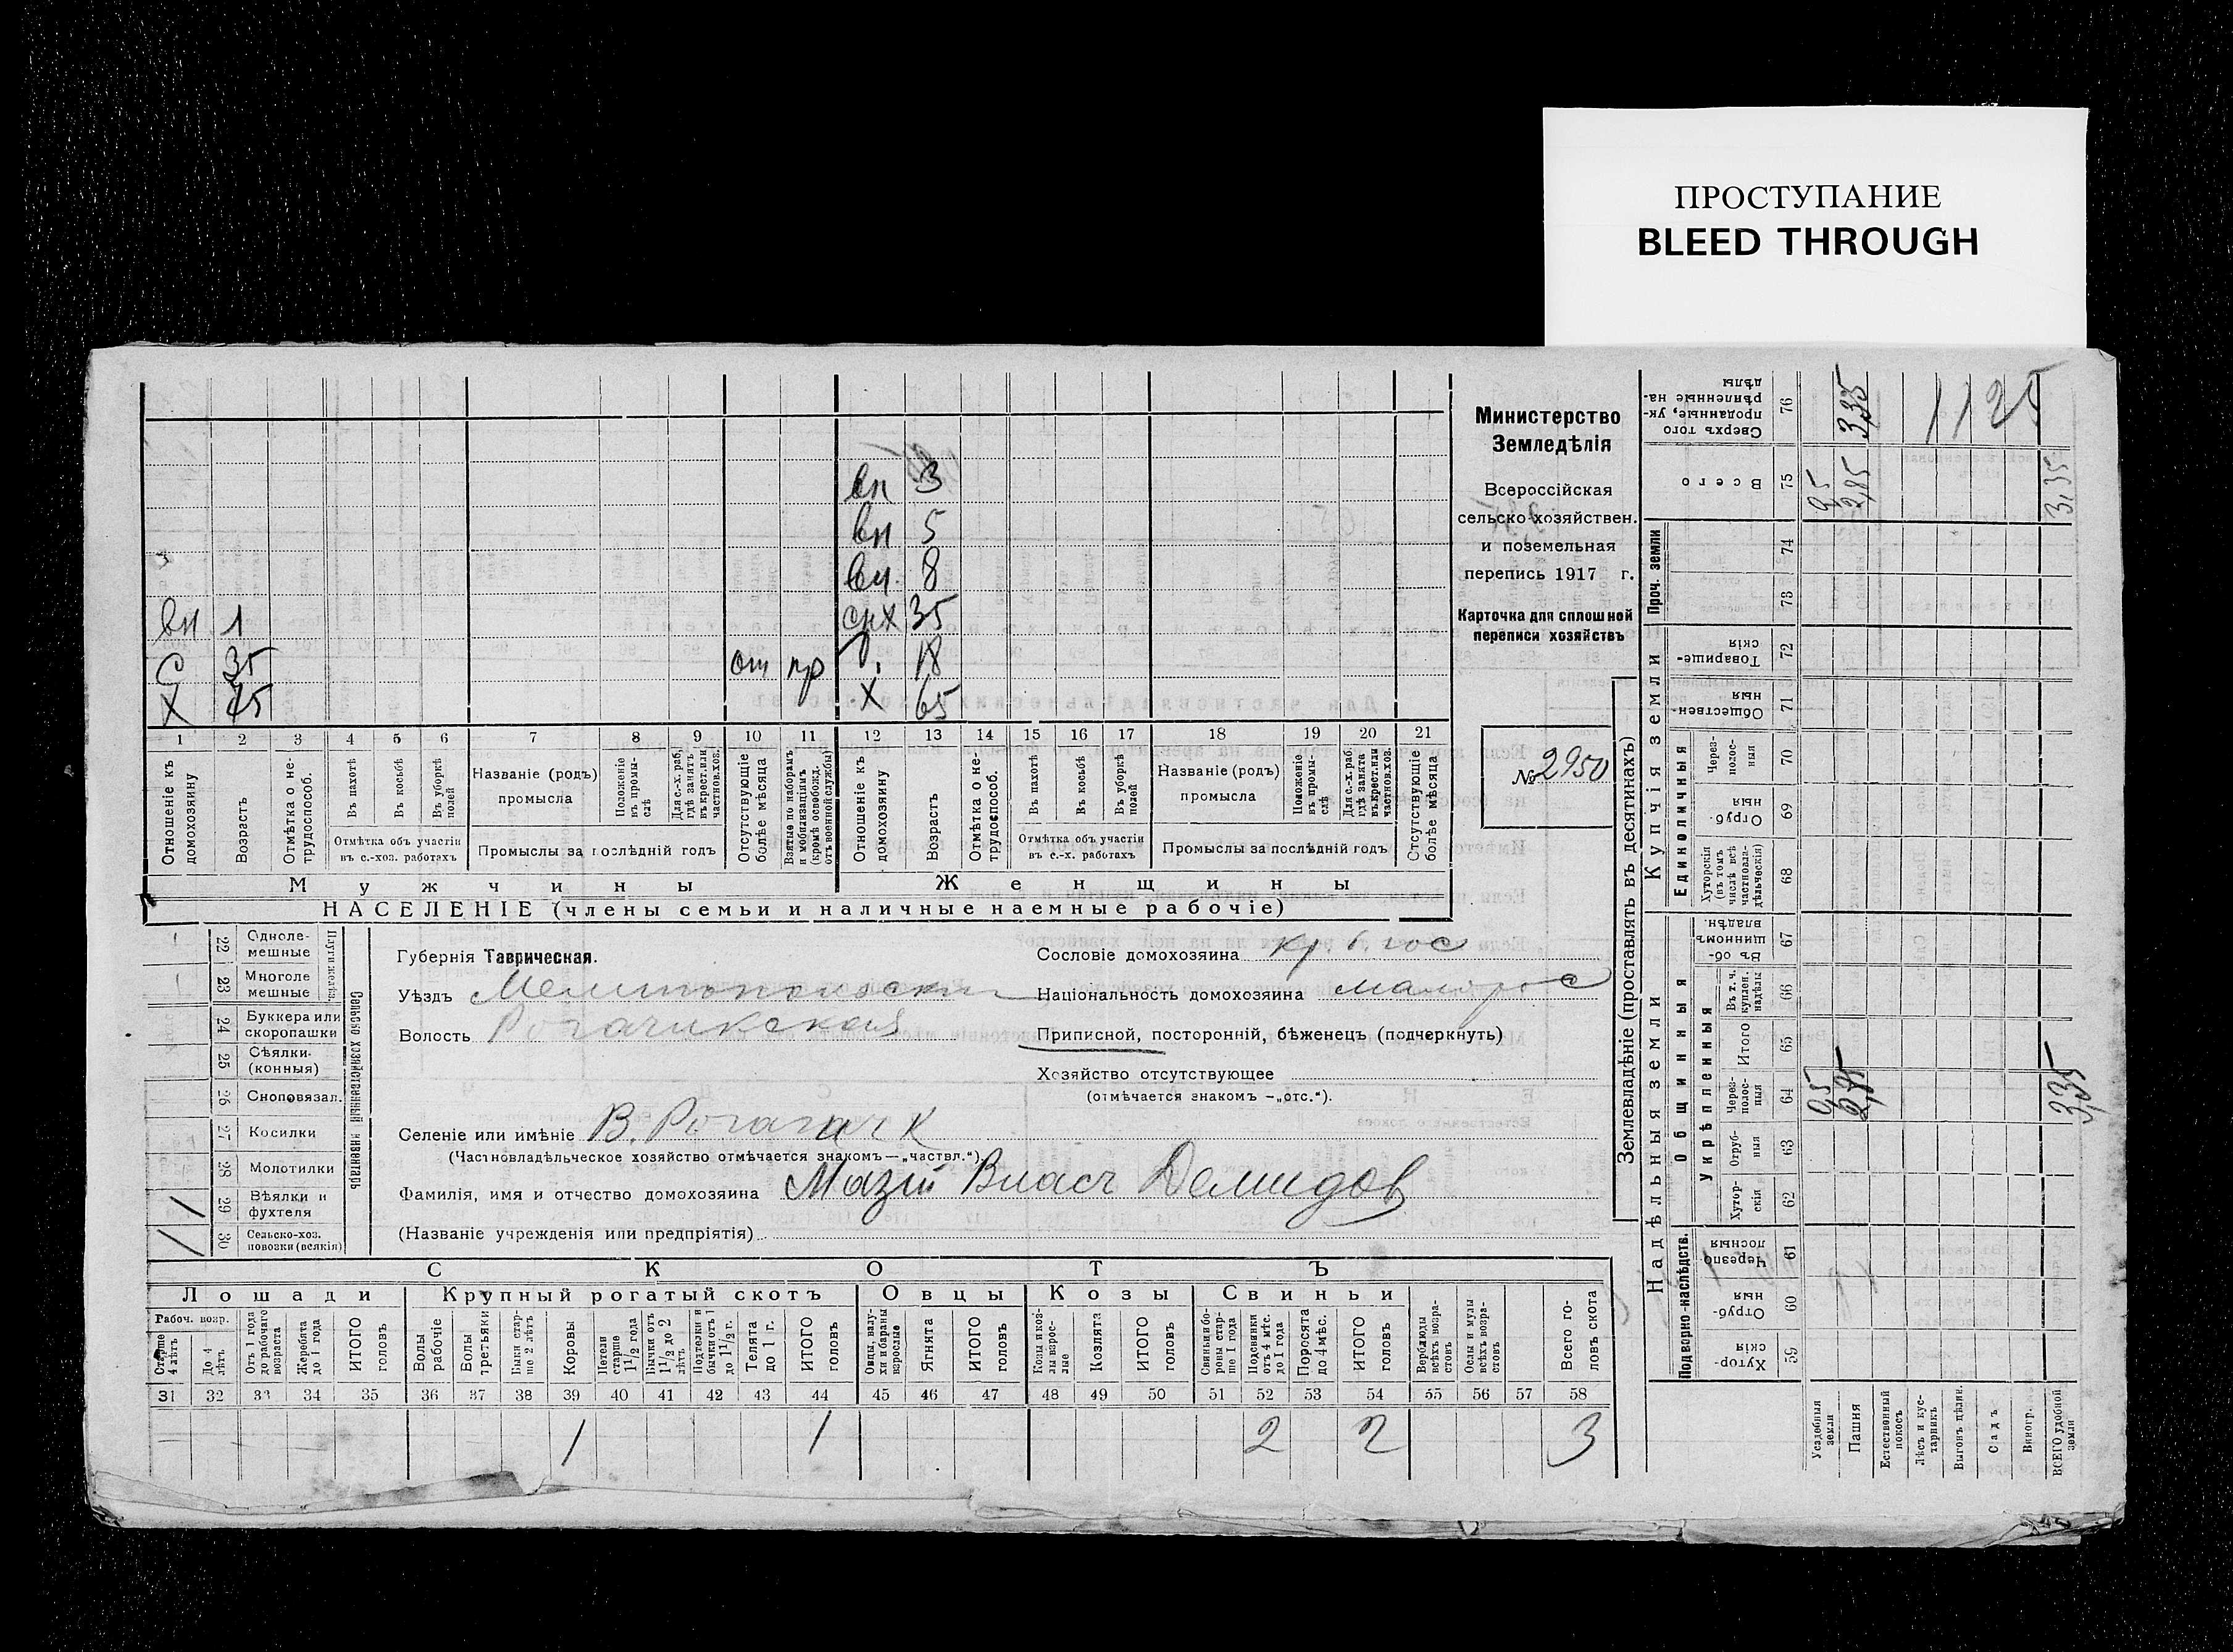 ПРОСТУПАНИЕ
BLEED THROUGH
вн 3
вн 5
вн 8
вн 1 снх 35
С 35 от пр 18
Х 75 Х 65
1 2 3 4 5 6 7 8 9 10 11 12 13 14 15 16 17 18 19 20 21
Отношеніе къ домохозяину
Возрастъ
Отмѣтка о не-трудоспособ.
Въ пахотѣ
Въ косьбѣ
Въ уборкѣ полей
Отмѣтка объ участіи въ с.-хоз. работахъ
Названіе (родъ) промысла
Положеніе въ промы-слѣ
Для с.-х. раб, гдѣ занятъ въ крест. или частнов.хоз.
Промыслы за послѣдній годъ
Отсутствующіе болѣе мѣсяца
Взятые по наборамъ и мобилизаціямъ (кромѣ освобожд. отъ военной службы)
Отношеніе къ домохозяину
Возрастъ
Отмѣтка о не-трудоспособ.
Въ пахотѣ
Въ косьбѣ
Въ уборкѣ полей
Отмѣтка объ участіи въ с.-х. работахъ
Названіе (родъ) промысла
Положеніе въ промы-слѣ
Для с.-х. раб. гдѣ занята въ крест. или частнов.хоз.
Промыслы за послѣдній годъ
Отсутствующіе болѣе мѣсяца
Мужчины
Женщины
НАСЕЛЕНІЕ (члены семьи и наличные наемные рабочіе)
Министерство
Земледѣлія
Всероссійская
сельско-хозяйствен.
и поземельная
перепись 1917 г.
Карточка для сплошной
переписи хозяйствъ
№ 2950
Сельско хозяйственный инвентарь
22 Одноле-мешные
23 Многоле мешные
24 Буккера или скоропашки
25 Сѣялки. (конныя)
26 Сноповязал.
27 Косилки
28 Молотилки
/ 29 Вѣялки и фухтеля
/ 30 Сельско-хоз. повозки (всякія)
Губернія Таврическая.
Уѣздъ Мелитопольскій
Волость Рогачикская
Селеніе или имѣніе В. Рогачик
(Частновладѣльческое хозяйство отмѣчается знакомъ—„частвл.“)
Фамилія, имя и отчество домохозяина Мазій Власъ Демидов
(Названіе учрежденія или предпріятія)
Сословіе домохозяина кр. б. гос
Національность домохозяина малорос
Приписной, посторонній, бѣженецъ (подчеркнуть)
Хозяйство отсутствующее
(отмѣчается знакомъ —„отс.“).
СКОТЪ
Лошади Крупный рогатый скотъ Овцы Козы Свиньи
Рабоч. возр.
Старше 4 лѣтъ
До 4 лѣтъ
Отъ 1 года до рабочаго возраста
Жеребята до 1 года
ИТОГО головъ
Волы рабочіе
Волы третьяки
Быки стар-ше 2 лѣтъ
Коровы
Нетели старше 1 1/2 года
Бычки отъ 1 1/2 до 2 лѣтъ
Подтелки и бычки отъ 1 до 1 1/2 г.
Телята до 1 г.
ИТОГО головъ
Овцы, валу-хи и бараны взрослые
Ягнята
ИТОГО головъ
Козы и коз-лы взрос-лые
Козлята
ИТОГО головъ
Свиньи бо-ровы стар-ше 1 года
Подсвинки отъ 4 мѣс. до 1 года
Поросята до 4 мѣс.
ИТОГО головъ
Верблюды всѣхъ возра-стовъ
Ослы и мулы всѣхъ возра-стовъ
Всего го-ловъ скота
31 32 33 34 35 36 37 38 39 40 41 42 43 44 45 46 47 48 49 50 51 52 53 54 55 56 57 58
1 1 2 2 3
Землевладѣніе (проставлять въ десятинахъ)
Надѣльныя земли
Купчія земли
Проч. земли
Общинныя
Укрѣпленныя
Единоличныя
Подворно-наслѣдств.
Сверхъ того проданные, ук-рѣпленные на-дѣлы 76 3,35 1125
Всего 75 2,85 3,35
74
73
Товарище-скія 72
Обществен-ныя 71
Через-полос-ныя 70
Отруб-ныя 69
Хуторскія (въ томъ числѣ всѣ частновла-дѣльческія) 68
Въ об-щинномъ владѣн. 67
Въ т. ч. куплен. надѣлы 66
Итого 65
Через-полос-ныя 64 3,35
Отруб-ныя 63
Хутор-скія 62
Черезпо лосныя 61
Отруб-ныя 60
Хутор-скія 59
Усадебныя земли
Пашня
Естественный покосъ
Лѣсъ и кус-тарникъ
Выгонъ цѣлин.
Садъ
Виногр.
ВСЕГО удобной земли